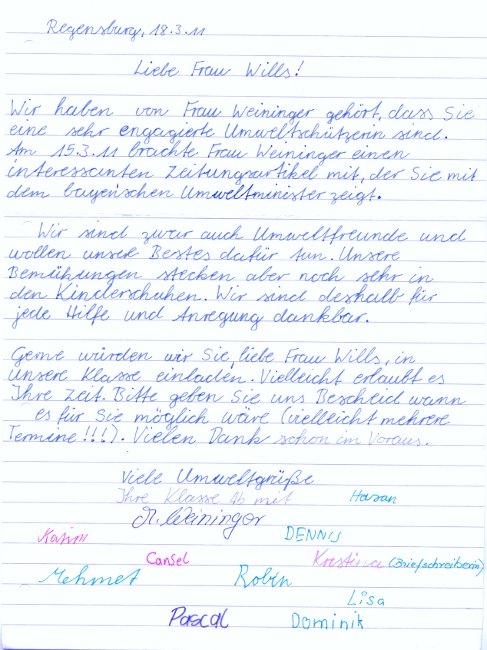 Regensburg, 18.3.11
Liebe Frau Wills!
Wir haben von Frau Weininger gehört, dass Sie
eine sehr engagierte Umweltschützerin sind.
Am 15.3.11 brachte Frau Weininger einen
interessanten Zeitungsartikel mit, der Sie mit
dem bayerischen Umweltminister zeigt.
Wir sind zwar auch Umweltfreunde und
wollen unser Bestes dafür tun. Unsere
Bemühungen stecken aber noch sehr in
den Kinderschuhen. Wir sind deshalb für
jede Hilfe und Anregung dankbar.
Gerne würden wir Sie, liebe Frau Wills, in
unsere Klasse einladen. Vielleicht erlaubt es
Ihre Zeit. Bitte geben Sie uns Bescheid wann
es für Sie möglich wäre (vielleicht mehrere
Termine!!!). Vielen Dank schon im Voraus.
Viele Umweltgrüße
Ihre Klasse 9b mit Hasan
Weininger DENNIS
Cansel Kristina (Briefschreiberin)
Mehmet Robin
Lisa
Pascal Dominik